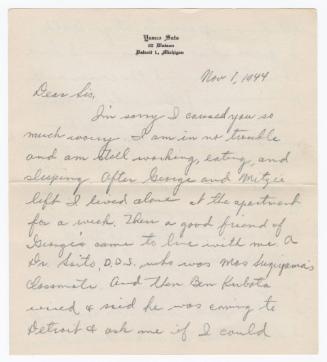 Yasuo Sato
Watson
Detroit 1, Michigan
Nov 1, 1944
Dear Sis,
I'm sorry I caused you so
much worry. I am in no trouble
and am still working, eating, and
sleeping. After George and Mitzie
left I lived alone at the apartment
for a week. Then a good friend of
George's came to live with me. A
Dr. Saito, D.D.S. who was Mas Sugiyama's
classmate. And then Ben Kubota
wired & said he was coming to
Detroit & ask me if I could